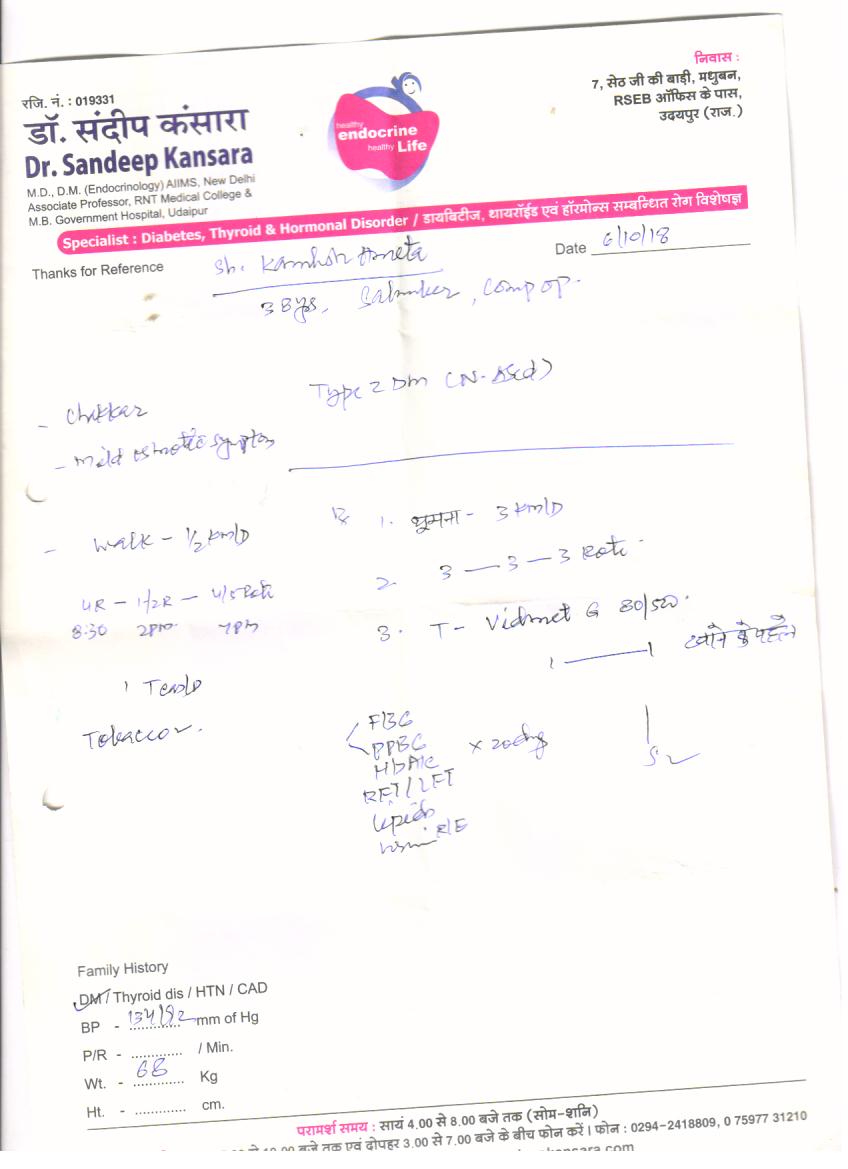 रजि. नं. : 019331
डॉ. संदीप कंसारा
Dr. Sandeep Kansara
M.D., D.M. (Endocrinology) AIIMS, New Delhi
Associate Professor, RNT Medical College &
M.B. Government Hospital, Udaipur
healthy
endocrine
healthy Life
निवास :
7, सेठ जी की बाड़ी, मधुबन,
RSEB ऑफिस के पास,
उदयपुर (राज.)
Specialist : Diabetes, Thyroid & Hormonal Disorder / डायबिटीज, थायरॉईड एवं हॉरमोन्स सम्बन्धित रोग विशेषज्ञ
Thanks for Reference
Sh.
Date 6/10/18
38 ys, Comp op.
Type 2 DM
- Chakkar
- mild osmotic symptom
- walk - 1/2 KM/D
4R - 1/2R - 4/5 Roti
8:30 2pm 7pm
1 Tea/D
Tobacco
Rx 1. घूमना - 3 KM/D
2. 3 — 3 — 3 Roti
3. T - Vidmet G 80/500
1 — 1 खाने से पहले
FBG
PPBG
HbA1c
RFT/LFT
Lipid
R/E
Family History
DM / Thyroid dis / HTN / CAD
BP - 134/92 mm of Hg
P/R - ............. / Min.
Wt. - 68 Kg
Ht. - ............. cm.
परामर्श समय : सायं 4.00 से 8.00 बजे तक (सोम-शनि)
बजे तक एवं दोपहर 3.00 से 7.00 बजे के बीच फोन करें । फोन : 0294-2418809, 0 75977 31210